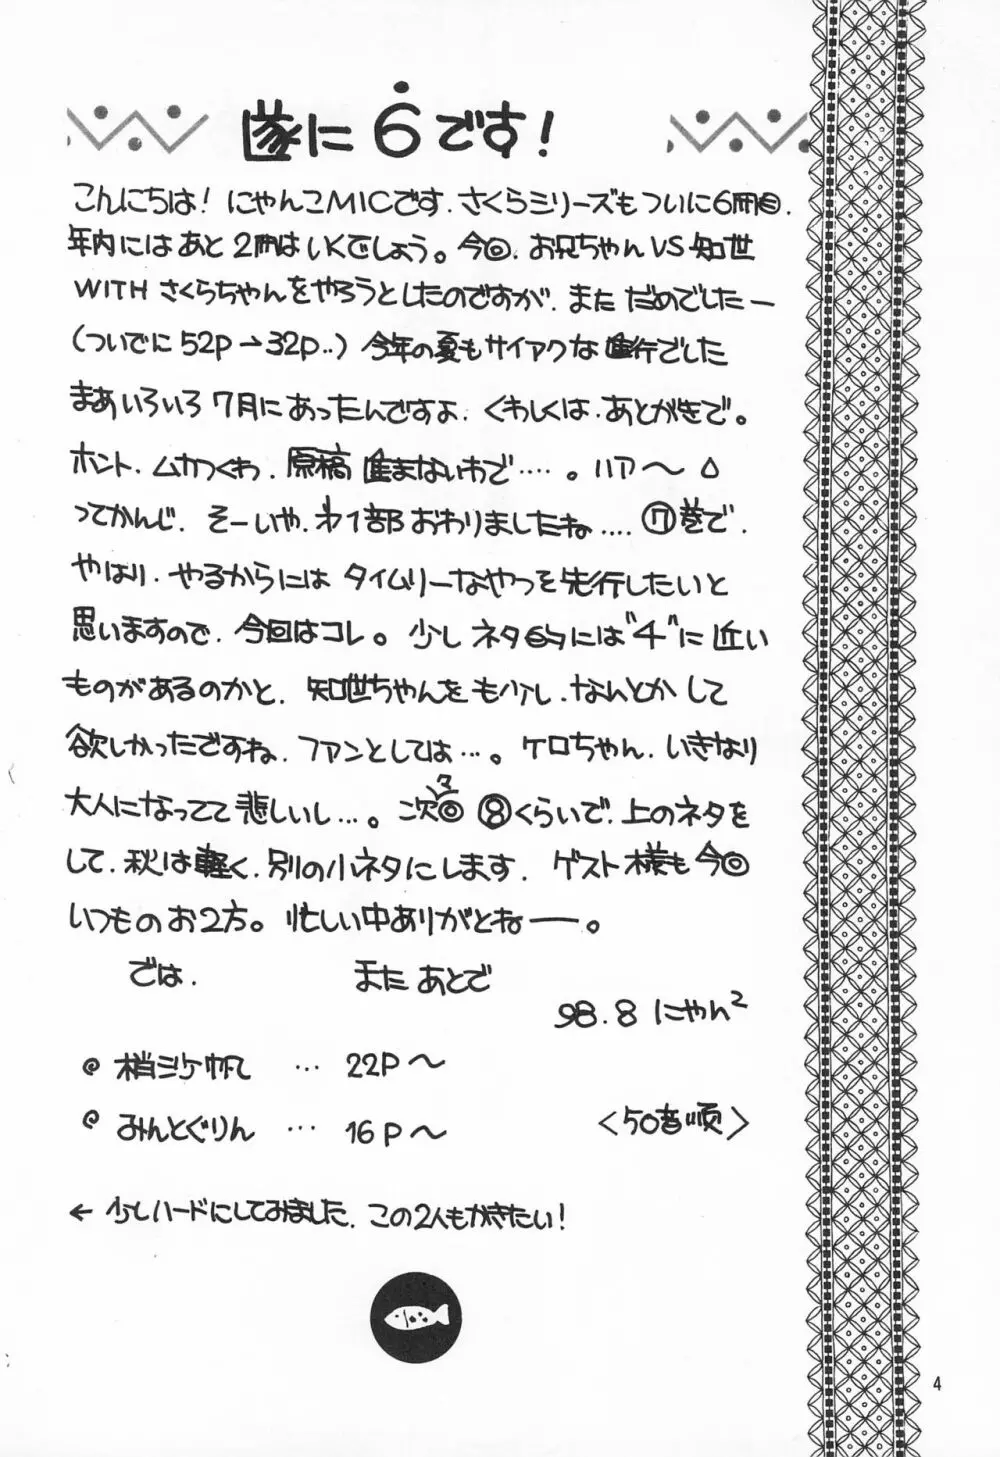 遂に6です!
こんにちは! にゃんこMICです. さくらシリーズもついに6冊目.
年内にはあと2冊はいくでしょう。今回. お兄ちゃんVS知世
WITHさくらちゃんをやろうとしたのですが. まただめでしたー
(ついでに52P→32P..) 今年の夏もサイアクな進行でした
まあいろいろ7月にあったんですよ. くわしくは. あとがきで。
ホント. ムカつくわ. 原稿進まないわで……。ハア〜
ってかんじ. そーいや. 才1部おわりましたね…. ⑦巻で.
やはり. やるからにはタイムリーなやつを先行したいと
思いますので. 今回はコレ。少しネタ的には"4"に近い
ものがあるのかと. 知世ちゃんをも少し. なんとかして
欲しかったですね. ファンとしては…。ケロちゃん. いきなり
大人になってて悲しいし…。次々回⑧くらいで. 上のネタを
して. 秋は軽く. 別の小ネタにします. ゲスト様も今回
いつものお2方。忙しい中ありがとねー。
では. またあとで
98.8 にゃん²
梢ミケ帆 … 22P〜
みんとぐりん … 16P〜 <50音順>
← 少しハードにしてみました. この2人もかきたい!
4